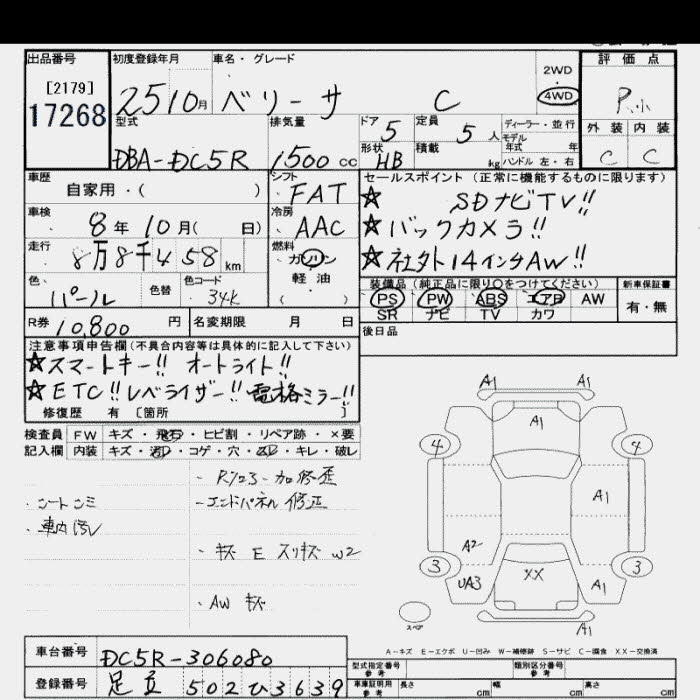 出品番号
[2179]
17268
初度登録年月
25 10月
車名・グレード
ベリーサ C
2WD
・
4WD
評価点
R小
外装 内装
C C
型式
DBA-DC5R
排気量
1500 cc
ドア 5
形状 HB
定員 5 人
積載 kg
ディーラー・並行
モデル
年式 年
ハンドル 左・右
車歴
自家用・( )
シフト
FAT
車検
8年 10月( 日)
冷房
AAC
走行
8万8千458 km
燃料
ガソリン
軽油
( )
色
パール
色替
色コード
34K
R券 10,800 円
名変期限 月 日
セールスポイント (正常に機能するものに限ります)
★ SDナビTV!!
★バックカメラ!!
★社外14インチAW!!
装備品(純正品に限り○をつけてください)
PS PW ABS エアB AW
SR ナビ TV カワ
新車保証書
有・無
後日品
注意事項申告欄(不具合内容等は具体的に記入して下さい)
★スマートキー!! オートライト!!
★ETC!!レベライザー!!電格ミラー!!
修復歴 有 [箇所 ]
検査員 FW キズ・飛石・ヒビ割・リペア跡・×要
記入欄 内装 キズ・汚れ・コゲ・穴・スレ・キレ・破レ
・シートシミ
・車内汚レ
- エンドパネル 修正
・キズ E スリキズ W2
・AW キズ
A1 A1
A1
4 4
A1
A2
3 3
UA3 XX A1
A1
スペア
A-キズ E-エクボ U-凹み W-補修跡 S-サビ C-腐食 XX-交換済
車台番号 DC5R-306080
登録番号 足立 502ひ3639
型式指定番号
参考
類別区分番号
参考
車庫証明用
参考
長さ cm 幅 cm 高さ cm